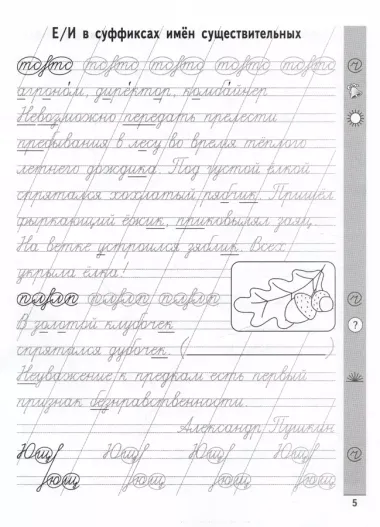 Е/И в суффиксах имён существительных
агроном, директор, комбайнер
Невозможно передать прелести
пребывания в лесу во время тёплого
летнего дождика. Под густой ёлкой
спрятался хохлатый рябчик. Пришёл
фыркающий ёжик, приковылял заяц.
На ветке устроился зяблик. Всех
укрыла ёлка!
В золотой клубочек
спрятался дубочек. (
)
Неуважение к предкам есть первый
признак безнравственности.
Александр Пушкин
Ющ Ющ Ющ Ющ
ющ ющ ющ ющ
?
5